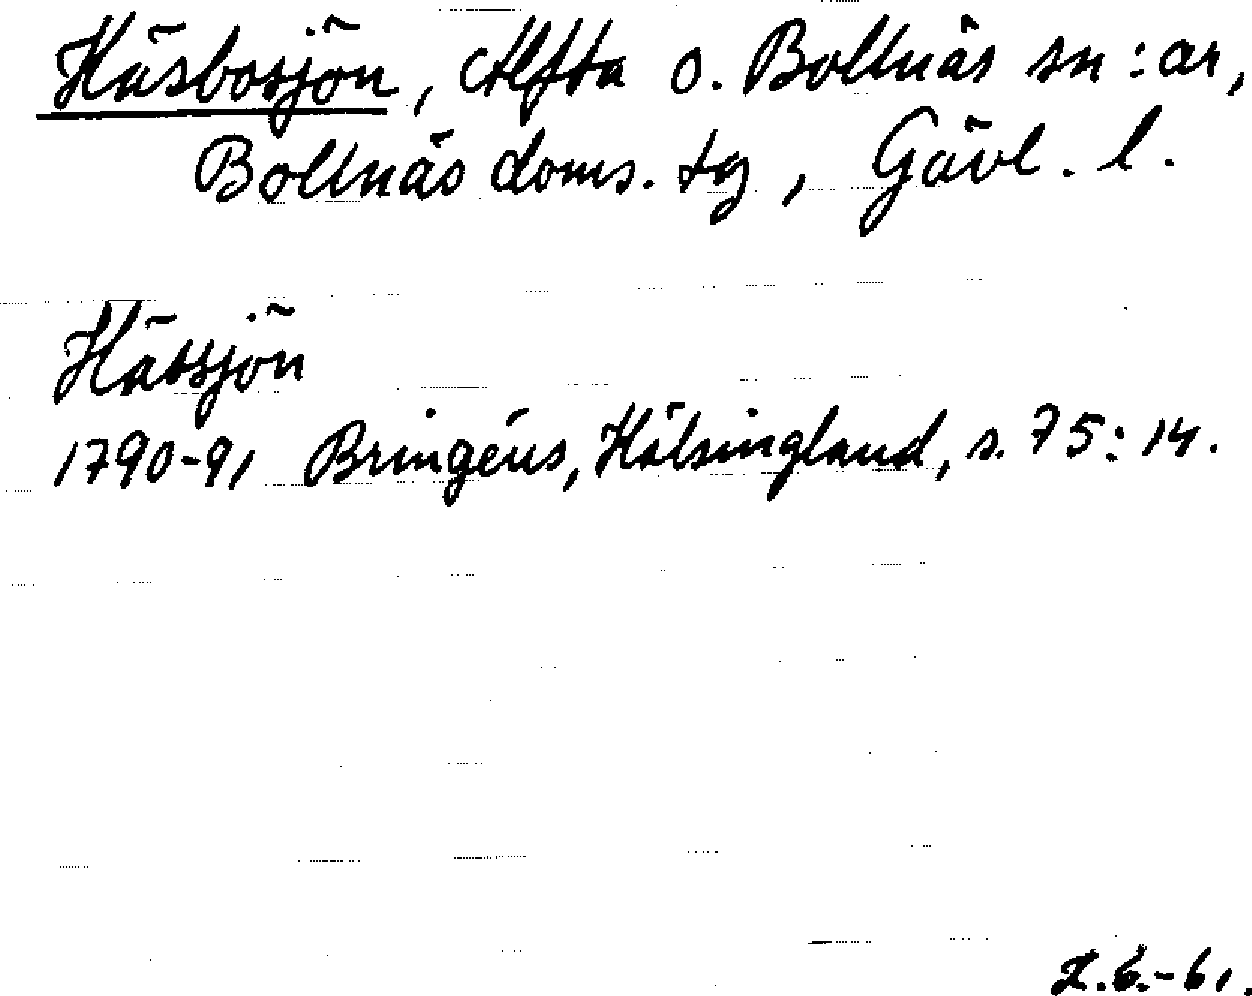 Häsbosjön, Alfta o. Bollnäs sn:ar,
Bollnäs doms. tg, Gävl. l.
Hässjön
1790-91 Bringéus, Hälsingland, s. 75:14.